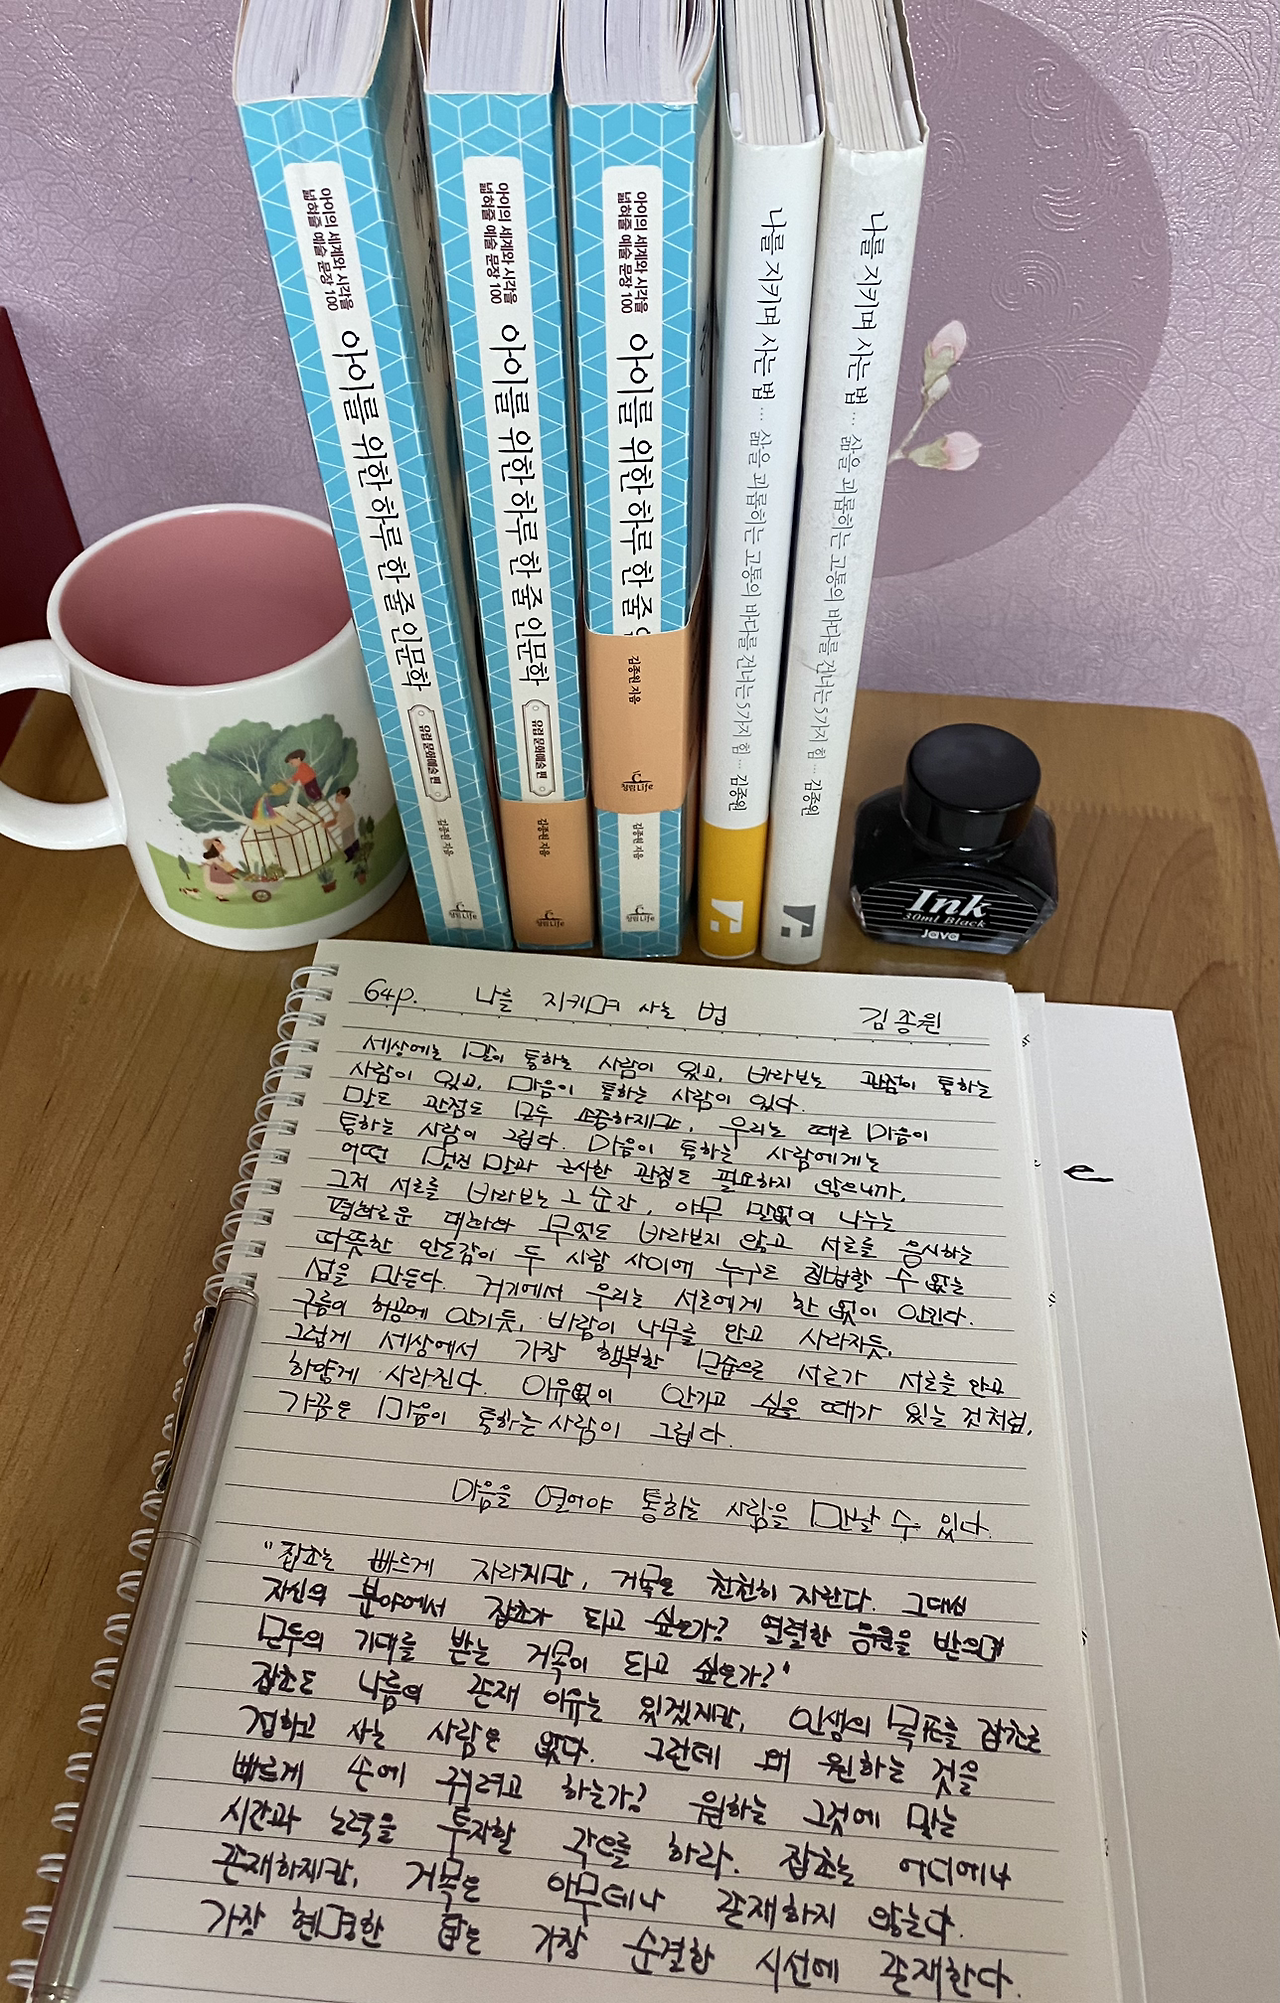 아이의 세계와 시각을
넓혀줄 예술 문장 100
아이를 위한 하루 한 줄 인문학
유럽 문화예술 편
김종원 지음
청림Life
아이의 세계와 시각을
넓혀줄 예술 문장 100
아이를 위한 하루 한 줄 인문학
유럽 문화예술 편
김종원 지음
청림Life
아이의 세계와 시각을
넓혀줄 예술 문장 100
아이를 위한 하루 한 줄
김종원 지음
청림Life
김종원 지음
청림Life
나를 지키며 사는 법 … 삶을 괴롭히는 고통의 바다를 건너는 5가지 힘 … 김종원
나를 지키며 사는 법 … 삶을 괴롭히는 고통의 바다를 건너는 5가지 힘 … 김종원
Ink
30ml Black
Java
64p. 나를 지키며 사는 법 김종원
세상에는 말이 통하는 사람이 있고, 바라보는 관점이 통하는
사람이 있고, 마음이 통하는 사람이 있다.
말도 관점도 모두 소중하지만, 우리는 때로 마음이
통하는 사람이 그립다. 마음이 통하는 사람에게는
어떤 멋진 말과 근사한 관점도 필요하지 않으니까.
그저 서로를 바라보는 그 순간, 아무 말없이 나누는
평화로운 대화와 무엇도 바라보지 않고 서로를 응시하는
따뜻한 안도감이 두 사람 사이에 누구도 침범할 수 없는
섬을 만든다. 거기에서 우리는 서로에게 한 없이 안긴다.
구름이 허공에 안기듯, 바람이 나무를 안고 사라지듯,
그렇게 세상에서 가장 행복한 모습으로 서로가 서로를 안고
하얗게 사라진다. 이유없이 안기고 싶을 때가 있는 것처럼,
가끔은 마음이 통하는 사람이 그립다.
마음을 열어야 통하는 사람을 만날 수 있다.
"잡초는 빠르게 자라지만, 거목은 천천히 자란다. 그대는
자신의 분야에서 잡초가 되고 싶은가? 열렬한 응원을 받으며
모두의 기대를 받는 거목이 되고 싶은가?"
잡초도 나름의 존재 이유는 있겠지만, 인생의 목표를 잡초로
정하고 사는 사람은 없다. 그런데 왜 원하는 것을
빠르게 손에 쥐려고 하는가? 원하는 그것에 맞는
시간과 노력을 투자할 각오를 하라. 잡초는 어디에나
존재하지만, 거목은 아무데나 존재하지 않는다.
가장 현명한 답은 가장 순결한 시선에 존재한다.
e